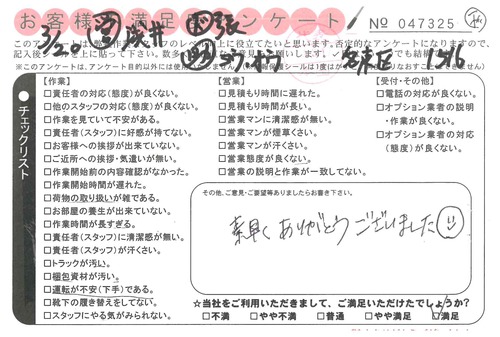 お客様 満足 アンケート
№ 047325
このアンケートは
上に役立てたいと思います。否定的なアンケートになりますので、
でも結構
※このアンケートは、アンケート目的以外には使用
チェックリスト
【作業】
□責任者の対応(態度)が良くない。
□他のスタッフの対応(態度)が良くない。
□作業を見ていて不安がある。
□責任者(スタッフ)に好感が持てない。
□お客様への挨拶が出来ていない。
□ご近所への挨拶・気遣いが無い。
□作業開始前の内容確認がなかった。
□作業開始時間が遅れた。
□荷物の取り扱いが雑である。
□お部屋の養生が出来ていない。
□作業時間が長すぎる。
□責任者(スタッフ)に清潔感が無い。
□責任者(スタッフ)が汗くさい。
□トラックが汚い。
□梱包資材が汚い。
□運転が不安(下手)である。
□靴下の履き替えをしてない。
□スタッフにやる気がみられない。
【営業】
□見積もり時間に遅れた。
□見積もり時間が長い。
□営業マンに清潔感が無い。
□営業マンが煙草くさい。
□営業マンが汗くさい。
□営業態度が良くない。
□営業の説明と作業が一致してない。
【受付・その他】
□電話の対応が良くない。
□オプション業者の説明
・作業が良くない。
□オプション業者の対応
(態度)が良くない。
その他、ご意見・ご要望等ありましたらお書き下さい。
素早く ありがとうございました
☆当社をご利用いただきまして、ご満足いただけたでしょうか?
□不満 □やや不満 □普通 □やや満足 □満足